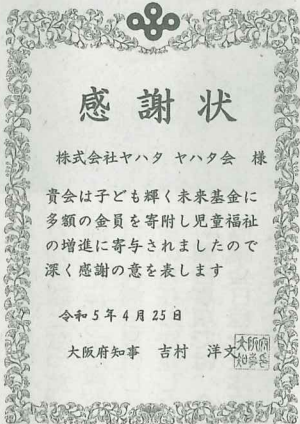 感謝状
株式会社ヤハタ ヤハタ会 様
貴会は子ども輝く未来基金に
多額の金員を寄附し児童福祉
の増進に寄与されましたので
深く感謝の意を表します
令和5年4月25日
大阪府知事 吉村 洋文